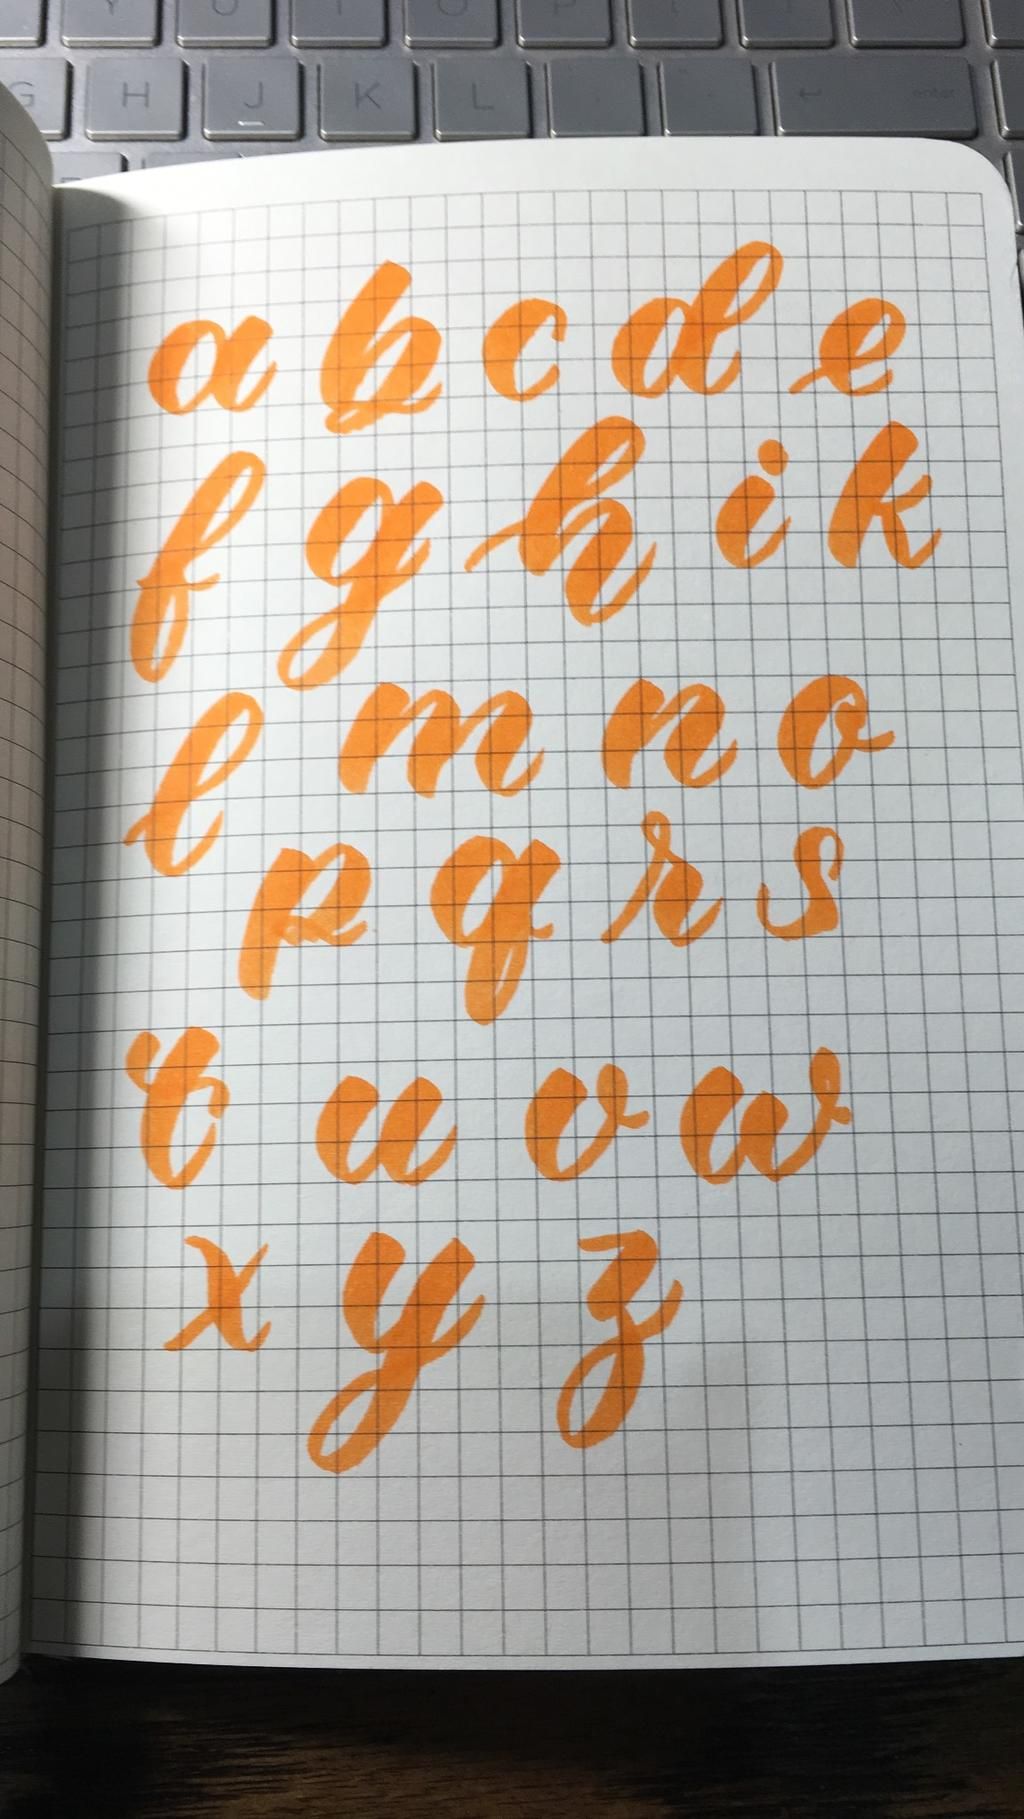 Y U I O P [
G H J K L enter
a b c d e
f g h i k
l m n o
p q r s
t u v w
x y z